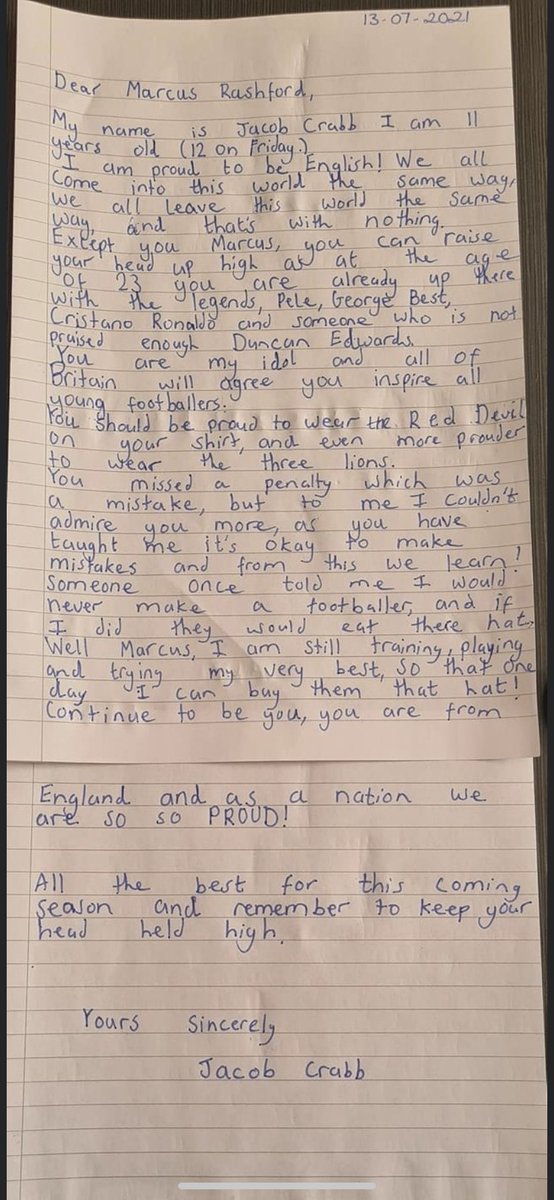 13-07-2021
Dear Marcus Rashford,
My name is Jacob Crabb I am 11
years old (12 on Friday.)
I am proud to be English! We all
Come into this world the same way,
we all leave this world the same
way, and that's with nothing.
Except you Marcus, you can raise
your head up high as at the age
Of 23 you are already up there
with the legends, Pele, George Best,
Cristano Ronaldo and someone who is not
praised enough Duncan Edwards.
You are my idol and all of
Britain will agree you inspire all
young footballers.
You should be proud to wear the Red Devil
on your shirt, and even more prouder
to wear the three lions.
You missed a penalty which was
a mistake, but to me I couldn't
admire you more, as you have
taught me it's okay to make
mistakes and from this we learn!
Someone once told me I would
never make a footballer, and if
I did they would eat there hat,
Well Marcus, I am still training, playing
and trying my very best, so that one
day I can buy them that hat!
Continue to be you, you are from
England and as a nation we
are so so PROUD!
All the best for this coming
season and remember to keep your
head held high.
Yours Sincerely
Jacob Crabb